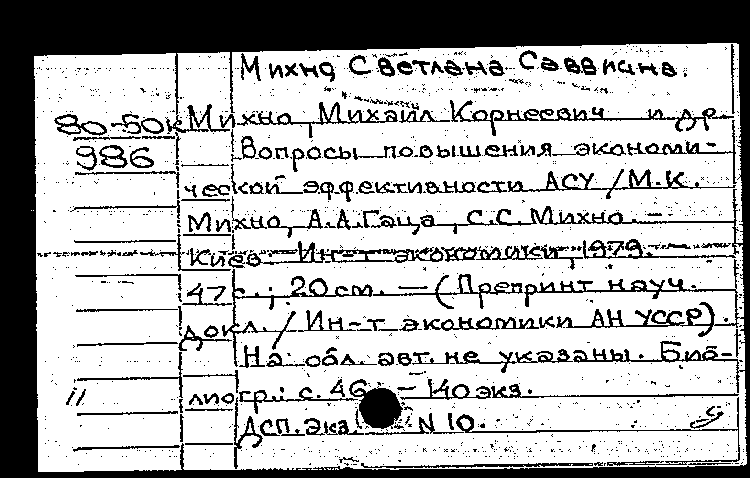 Михно Светлана Саввична.
80-50к Михно, Михайл Корнеевич и др.
986 Вопросы повышения экономи-
ческой эффективности АСУ / М.К.
Михно, А.А.Гаца, С.С. Михно. -
Киев: Ин-т экономики, 1979. -
47с.; 20 см. - (Препринт науч.
докл. / Ин-т экономики АН УССР).
На обл. авт. не указаны. Биб-
лиогр.: с. 46. - 140 экз.
ДСП. Экз. N 10.